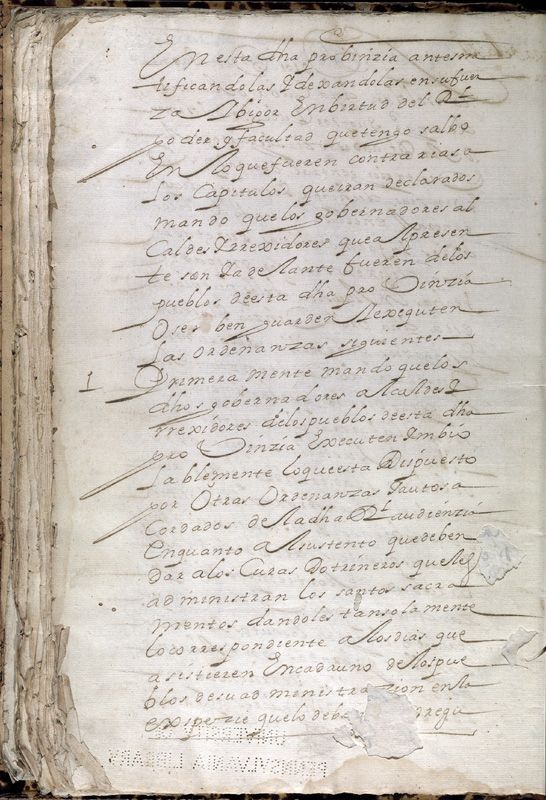 En esta dha probinzia antes ra
tificandolas Y dexandolas en su fuer
za Abigor En birtud del Rl
poder y facultad que tengo salbo
En lo que fueren contrarias a
los Capitulos que iran declarados
mando que los gobernadores al
Caldes Y rrexidores que al presen
te son Y adelante fueren de los
pueblos de esta dha probinzia
Oserben guarden Y exeguten
las ordenanzas siguientes
1 Primera mente mando que los
dhos gobernadores alcaldes Y
rrexidores de los pueblos de esta dha
probinzia Executen Imbio
lablemente lo que esta Dispuesto
por Otras Ordenanzas Y autos a
Cordados de la dha Rl audienzia
Enquanto al sustento que deben
Dar a los Curas Dotrineros que les
administran los santos sacra
mentos dandoles tan solamente
lo correspondiente a los dias que
asistieren En cada uno de los pue
blos de su administrazion en la
espezie que lo deba
PENNSYLVANIA LIBRARY